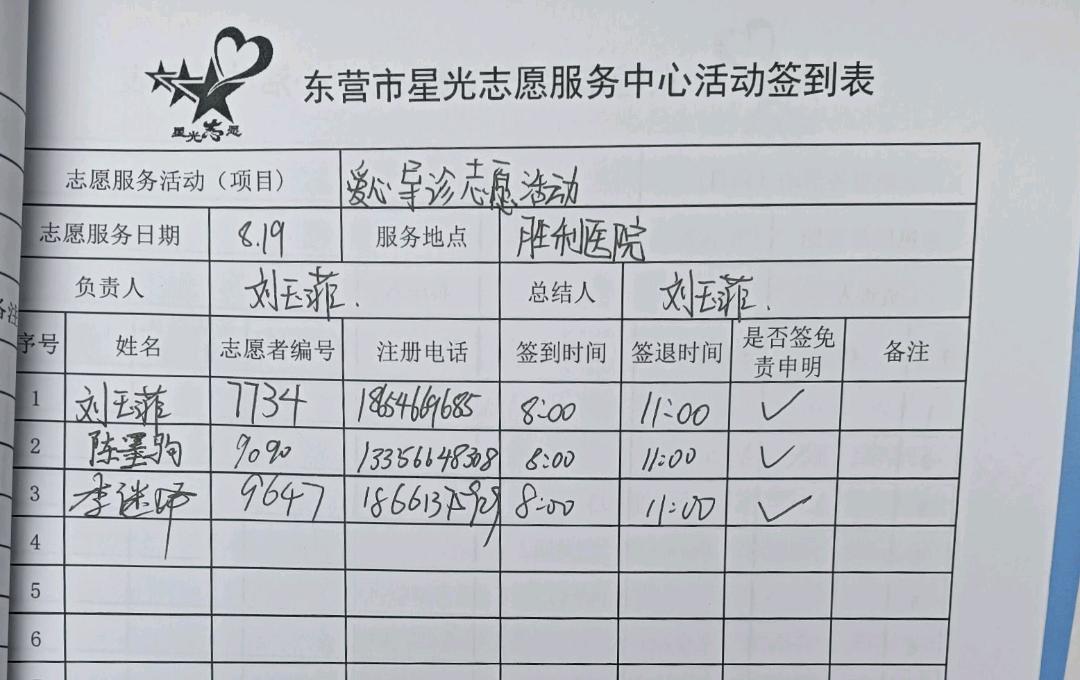 星光志愿
东营市星光志愿服务中心活动签到表
志愿服务活动（项目） 爱心导诊志愿活动
志愿服务日期 8.19 服务地点 胜利医院
负责人 刘玉菲. 总结人 刘玉菲.
序号 姓名 志愿者编号 注册电话 签到时间 签退时间 是否签免责申明 备注
1 刘玉菲 7734 18654669685 8:00 11:00 ✓
2 陈墨驹 9090 13356648308 8:00 11:00 ✓
3 李 9647 8:00 11:00 ✓
4
5
6
备注